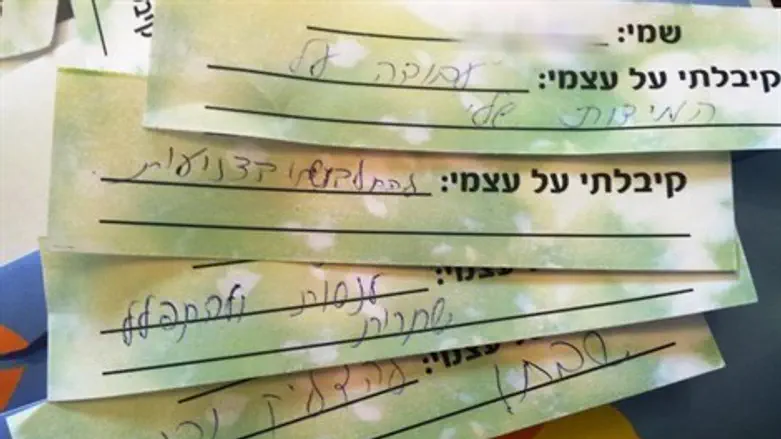 שמי:
קיבלתי על עצמי: עבודה על
המידות שלי
קיבלתי על עצמי: להתלבש בצניעות
עצמי: לנסות ולהתפלל
שחרית
עצמי: להדליק
שבת